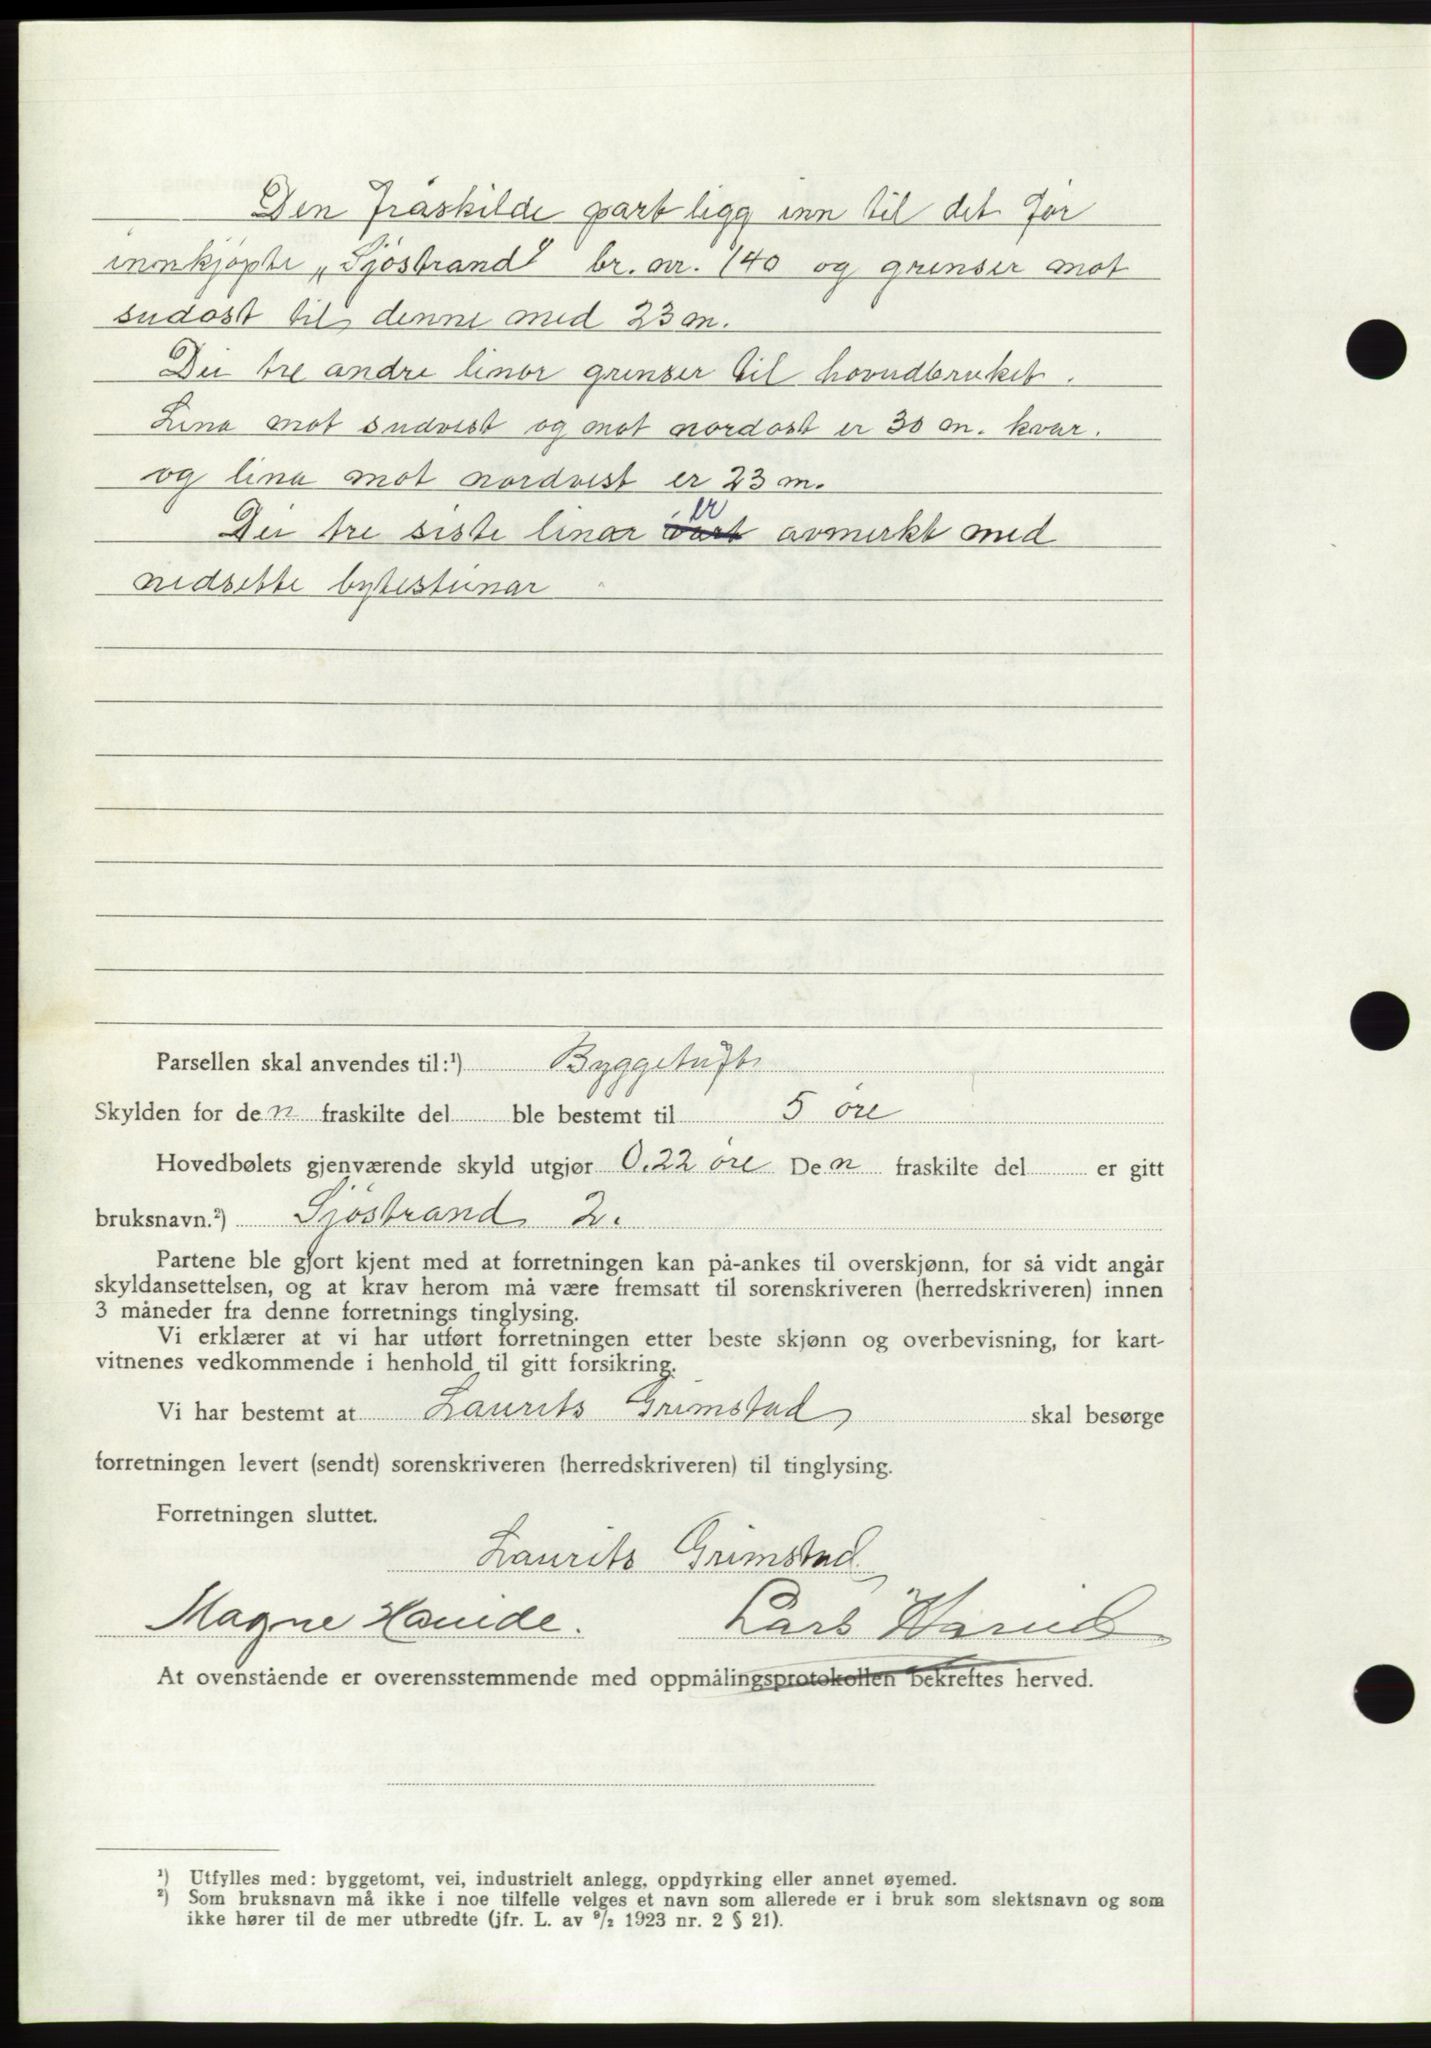 Den fråskilde part ligg inn til det før
innkjøpte „Sjøstrand" br. nr. 140 og grenser mot
sudøst til denne med 23 m.
Dei tre andre linor grenser til hovudbruket.
Lina mot sudvest og mot nordost er 30 m. kvar.
og lina mot nordvest er 23 m.
er
Dei tre siste linor vart avmerkt med
nedsette bytesteinar
Parsellen skal anvendes til:¹) Byggetuft
Skylden for den fraskilte del ble bestemt til 5 øre
Hovedbølets gjenværende skyld utgjør 0.22 øre Den fraskilte del er gitt
bruksnavn.²) Sjöstrand 2.
Partene ble gjort kjent med at forretningen kan på-ankes til overskjønn, for så vidt angår
skyldansettelsen, og at krav herom må være fremsatt til sorenskriveren (herredskriveren) innen
3 måneder fra denne forretnings tinglysing.
Vi erklærer at vi har utført forretningen etter beste skjønn og overbevisning, for kart-
vitnenes vedkommende i henhold til gitt forsikring.
Vi har bestemt at Laurits Grimstad skal besørge
forretningen levert (sendt) sorenskriveren (herredskriveren) til tinglysing.
Forretningen sluttet.
Laurits Grimstad
Magne Hameide. Lars Hareid
At ovenstående er overensstemmende med oppmålingsprotokollen bekreftes herved.
¹) Utfylles med: byggetomt, vei, industrielt anlegg, oppdyrking eller annet øyemed.
²) Som bruksnavn må ikke i noe tilfelle velges et navn som allerede er i bruk som slektsnavn og som
ikke hører til de mer utbredte (jfr. L. av ⁹/₂ 1923 nr. 2 § 21).